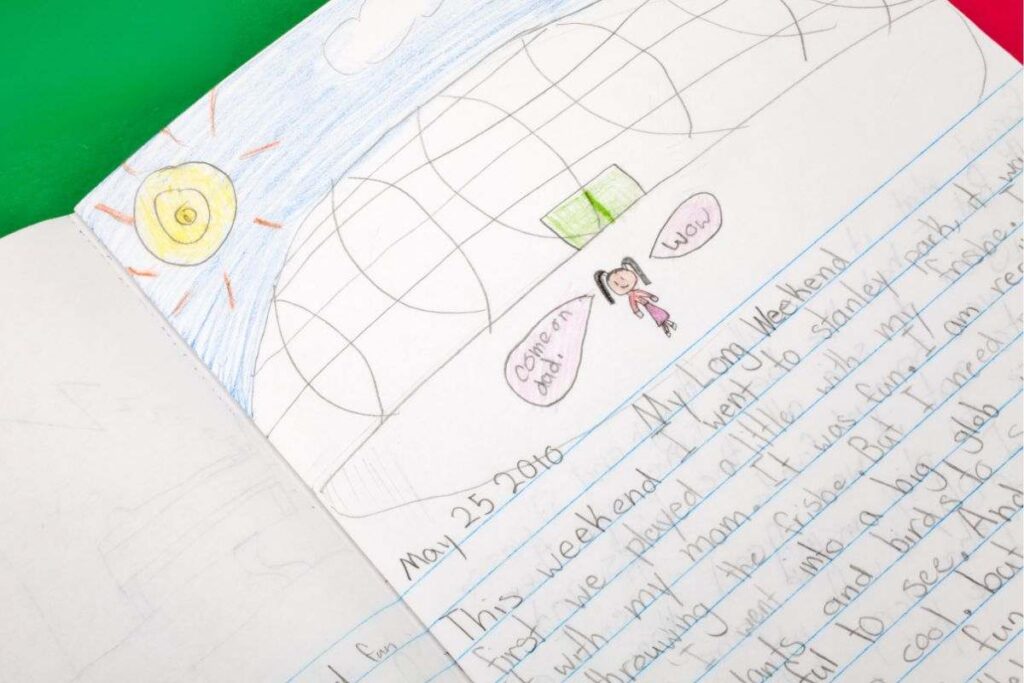 wow
come on
dad.
May 25 2010 My Long Weekend
This weekend I went to stanley park, it
first we played a little with my frisbe. I
with my mom. It was fun. I am
throuwing the frisbe. But I need
I went into a big glob
and birds to
to see. And
cool, but
fun
fun